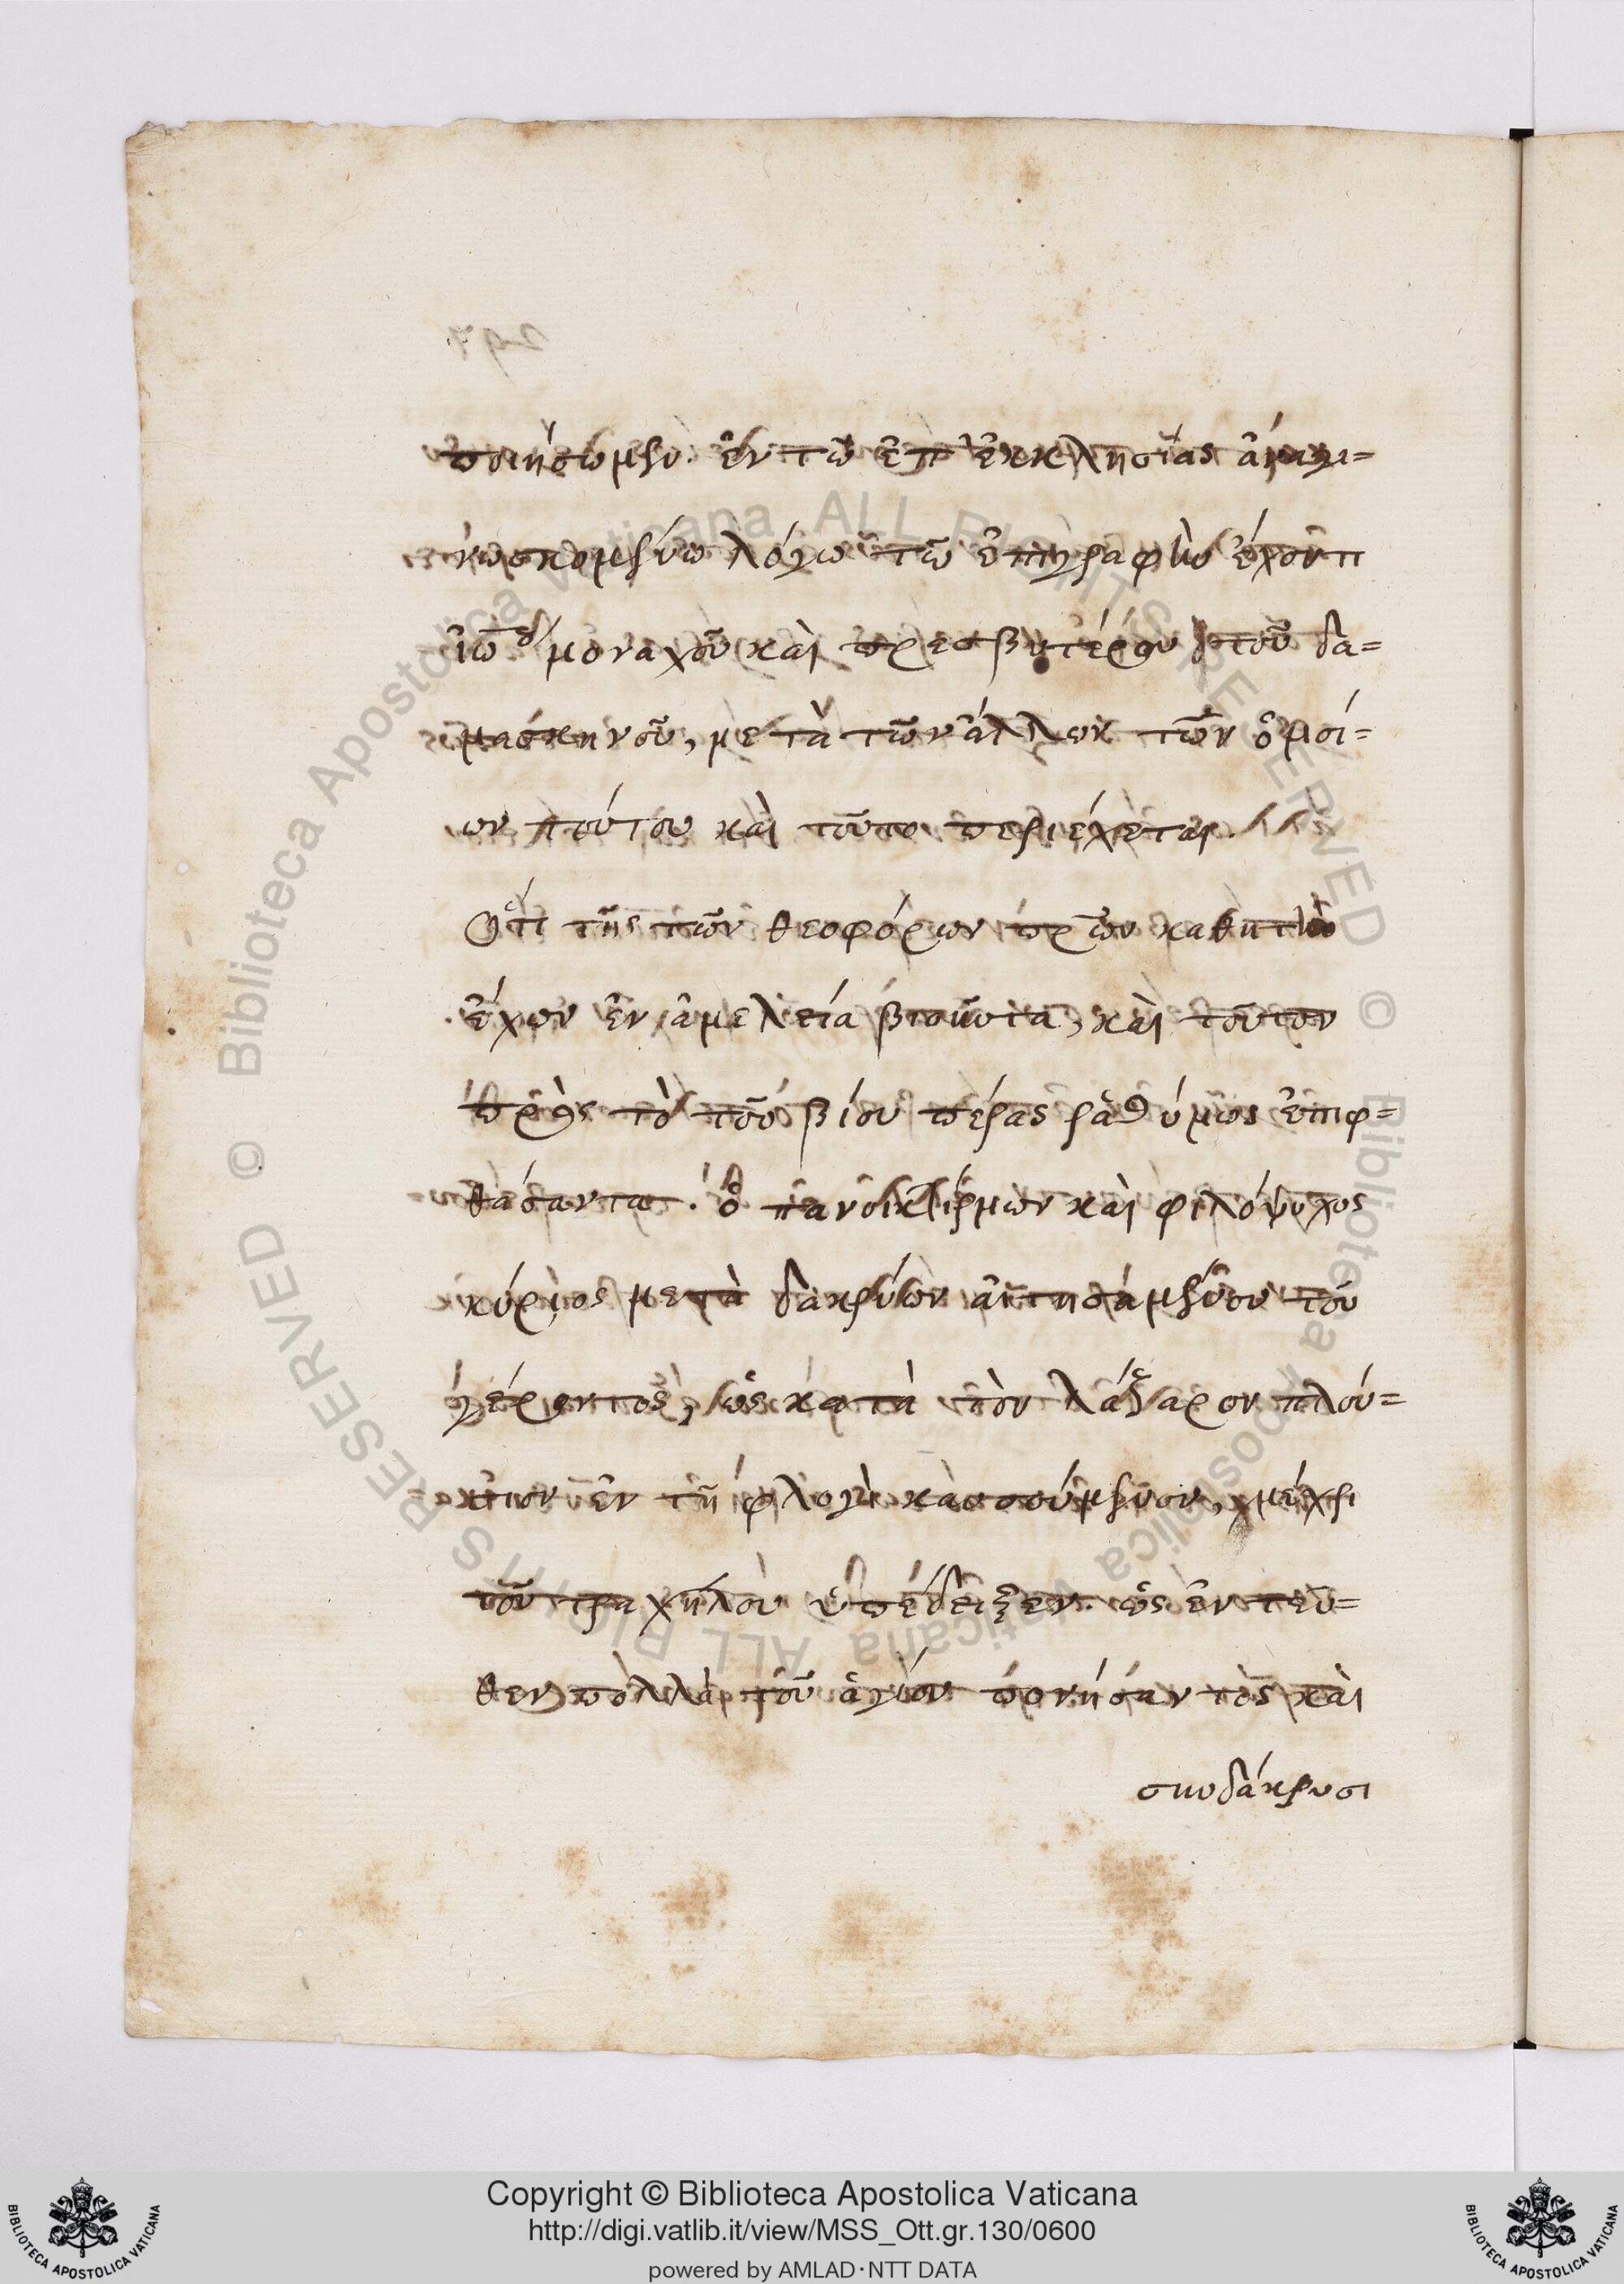 ποιήσωμεν. ἐν τῶ ἐπ' ἐκκλησίας ἀναγι=
νωσκομένω λόγω τῶ ἐπιγραφὴν ἔχοντι
ἰω μοναχοῦ καὶ πρεσβυτέρου τοῦ δα=
μασκηνοῦ, μετὰ τῶν ἄλλων τῶν ὁμοί=
ων τούτου καὶ τοῦτο περιέχεται.
Ὅτι τῆς τῶν θεοφόρων πρων μαθητὴν
ἔχων ἐν ἀμελεία βιοῦντα, καὶ τοῦτον
πρὸς τὸ τοῦ βίου πέρας ῥαθύμως ἐπιφ=
θάσαντα. ὁ πανοικτίρμων καὶ φιλόψυχος
κύριος μετὰ δακρύων αἰτησαμένου τοῦ
γέροντος, ὡς κατὰ τὸν λάζαρον πλού=
σιον ἐν τῆ φλογὶ καιόμενον, μέχρι
τοῦ τραχήλου ὑπέδειξεν. ὡς ἐντεῦ=
θεν πολλὰ τοῦ ἁγίου πονήσαντος καὶ
συνδάκρυσι
Copyright © Biblioteca Apostolica Vaticana
http://digi.vatlib.it/view/MSS_Ott.gr.130/0600
powered by AMLAD·NTT DATA
BIBLIOTECA APOSTOLICA VATICANA
BIBLIOTECA APOSTOLICA VATICANA
© Biblioteca Apostolica Vaticana ALL RIGHTS RESERVED
© Biblioteca Apostolica Vaticana ALL RIGHTS RESERVED